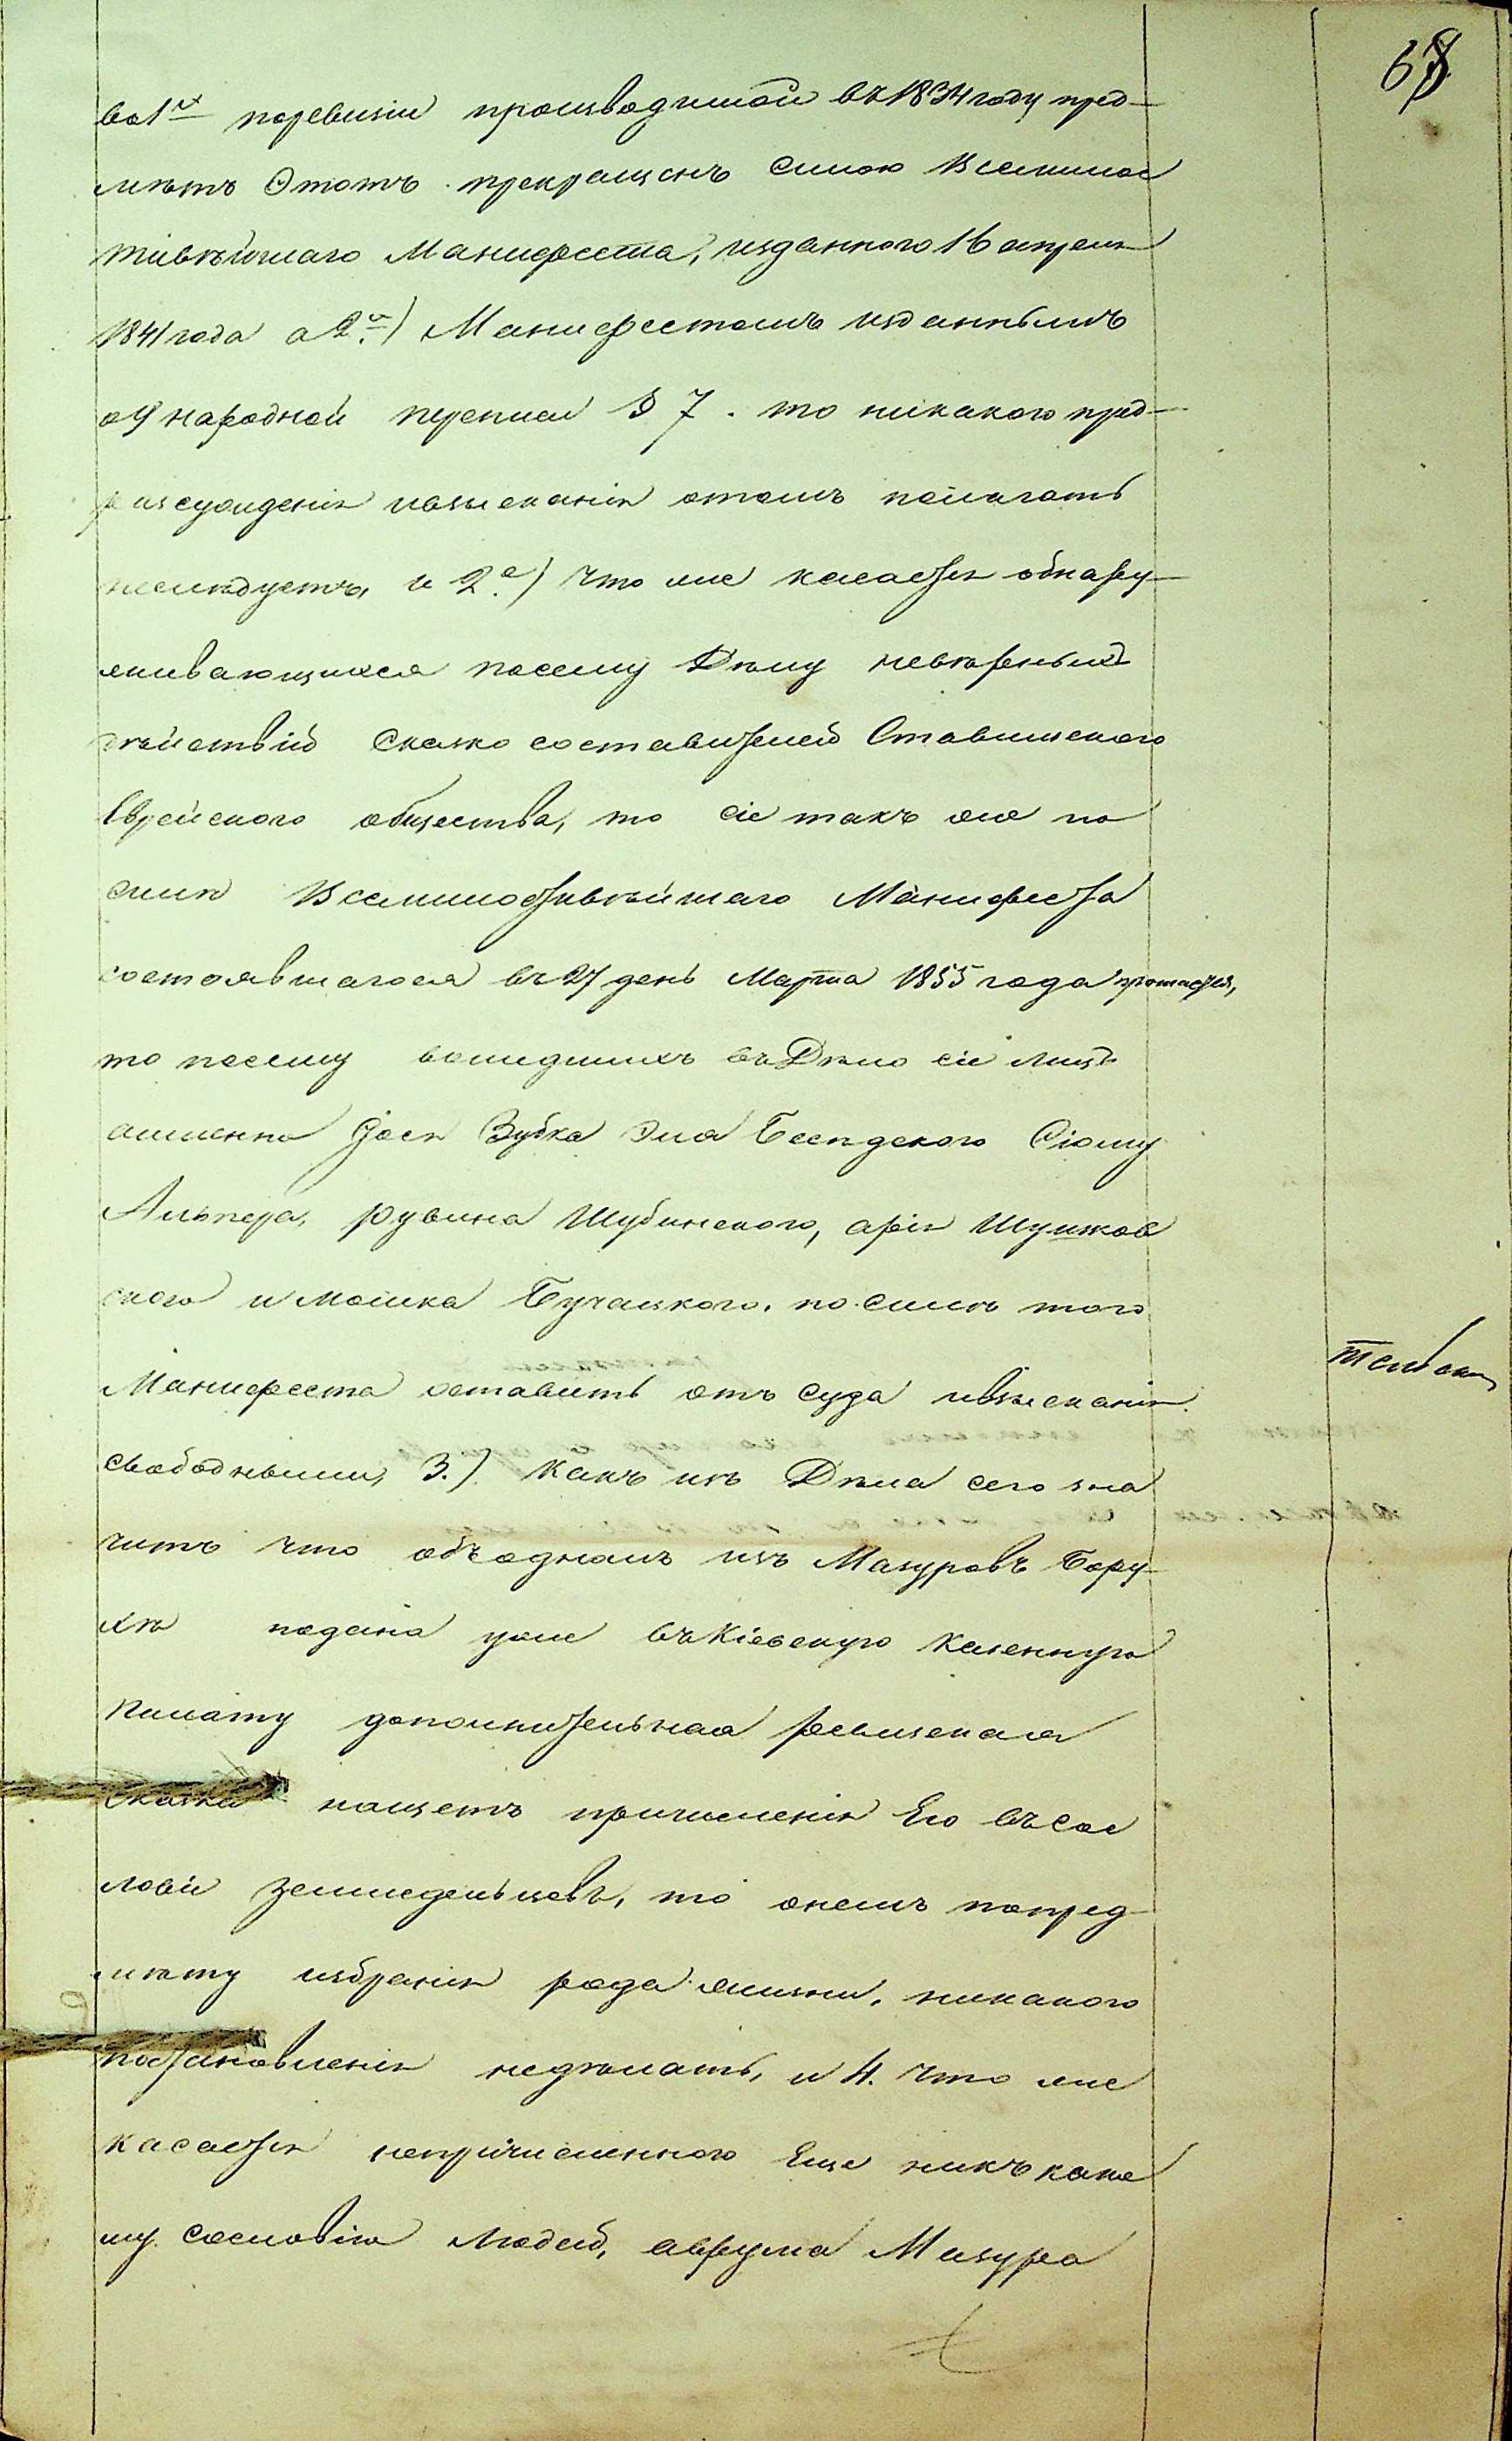 68
во 1х поревизіи производимой въ 1834 году пред-
мѣтъ Этотъ прекращенъ силою Всемилос
тивѣйшаго Манифеста, изданного 16 апреля
1841 года а 2й) Манифестомъ изданнымъ
о 9 народной переписи § 7. то никакого пред-
разсужденія ивзысканія отомъ полагать
неслѣдуетъ, и 2е) что же касается обнару-
живающихся посему Дѣлу невѣрныхъ
дѣйствій сказко составителей Ставищского
Еврейского общества, то сіе такъ же по
силѣ Всемилостивѣйшаго Манифеста
состоявшагося въ 27 день Марта 1855 года прощается,
то посему вошедшихъ въ Дѣло сіе лицъ
аименно Іося Зубка Эля Бесѣдского Сіому
Альпера, рувина Шубинского, арія Шумков
ского и мошка Бучацкого, по силѣ того
Манифеста оставить отъ суда ивзысканія
свободными, 3.) Какъ изъ Дѣла сего зна
читъ что объодномъ изъ Мазуровъ Бору-
хѣ подана уже въ Кіевскую Казенную
Палату дополнительная ревизская
сказка нащетъ причисленія Его въ сос
ловіи земледельцевъ, то онемъ попред-
мѣту избранія рода жизни, никакого
постановленія недѣлать, и 4. что же
касается непричисленного Еще никъ како
му сословію Людей, аврума Мазура